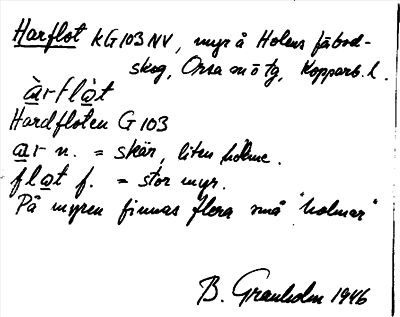 Harflot KG103NV, myr å Holens fäbod-
skog, Orsa sn ö tg, Kopparb. l.
àrflàt
Hardfloten G 103
ar n. = skär, liten holme.
flat f. = stor myr.
På myren finnas flera små "holmar"
B. Granholm 1946